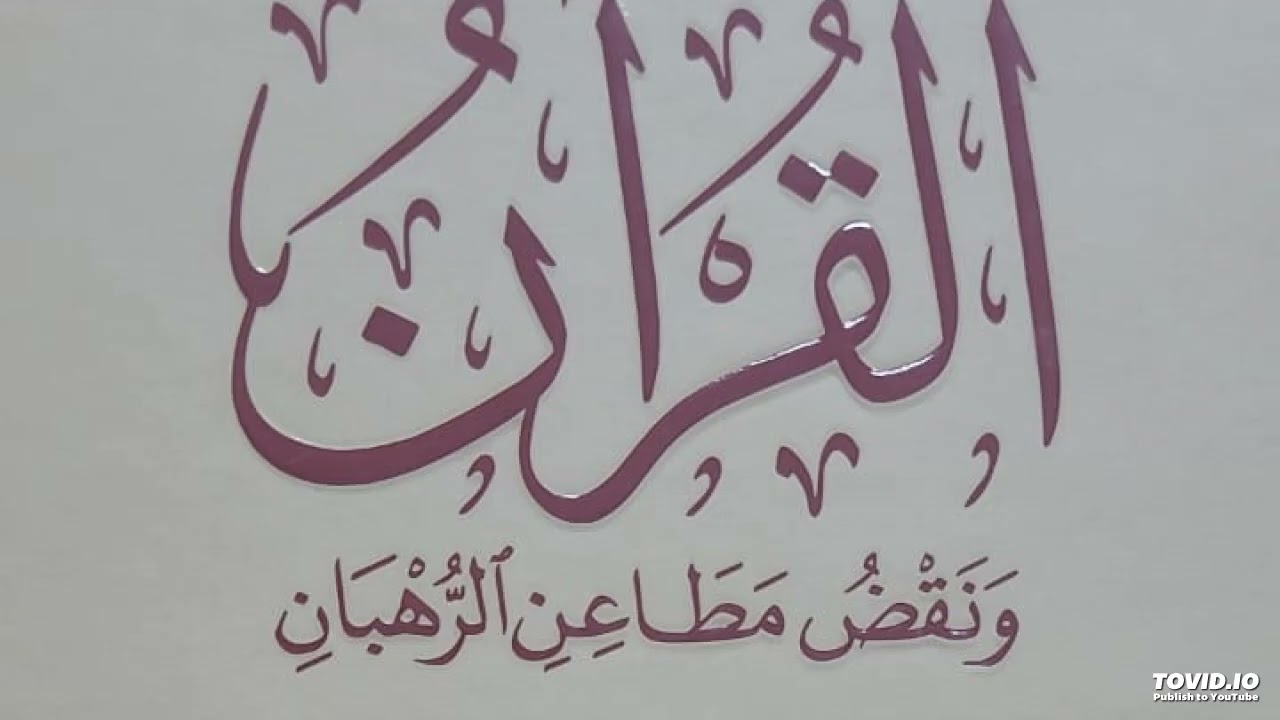 القرآن
وَنَقْضُ مَطَاعِنِ ٱلرُّهْبَانِ
TOVID.IO
Publish to YouTube